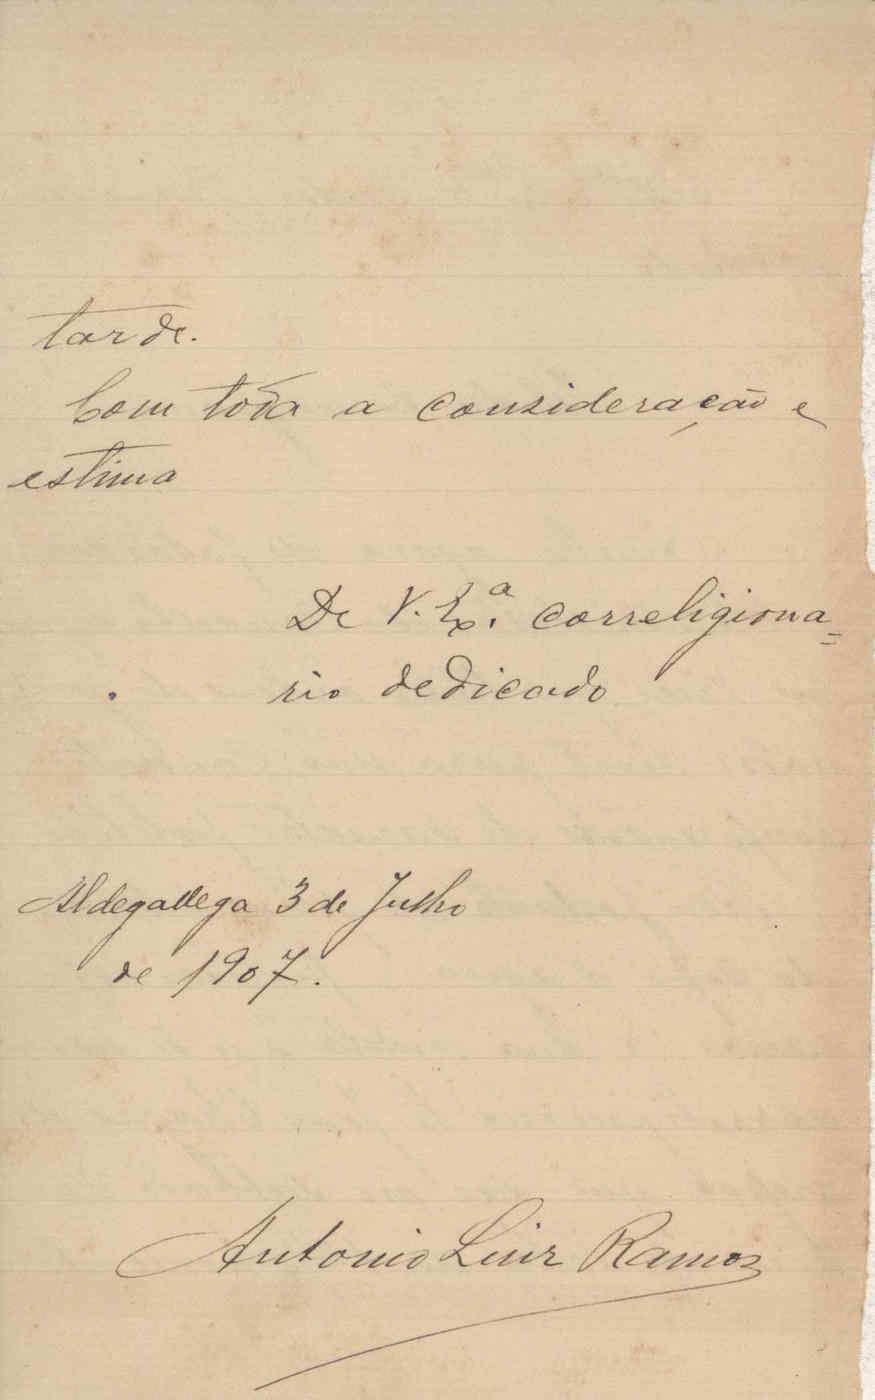 tarde.
Com toda a consideração e
estima
De V. Ex.ª correligiona=
rio dedicado
Aldegallega 3 de Julho
de 1907.
Antonio Luiz Ramos